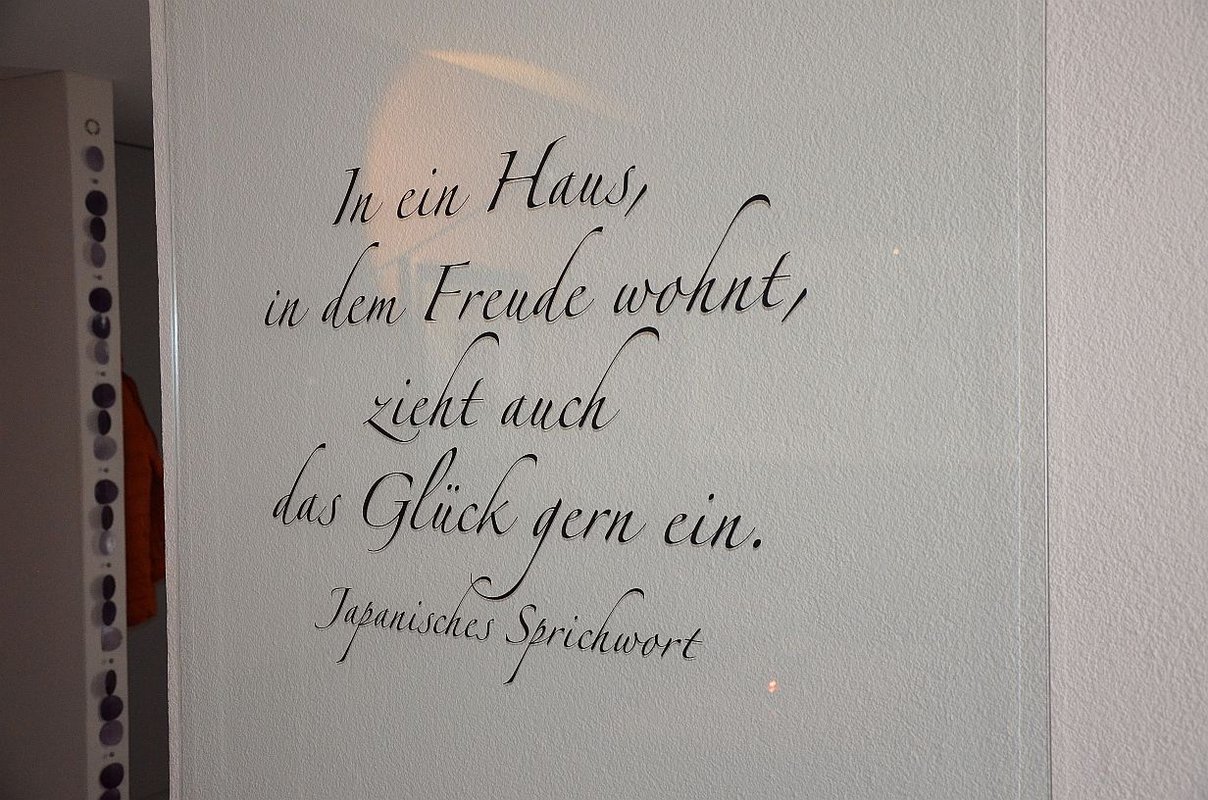 In ein Haus,
in dem Freude wohnt,
zieht auch
das Glück gern ein.
Japanisches Sprichwort